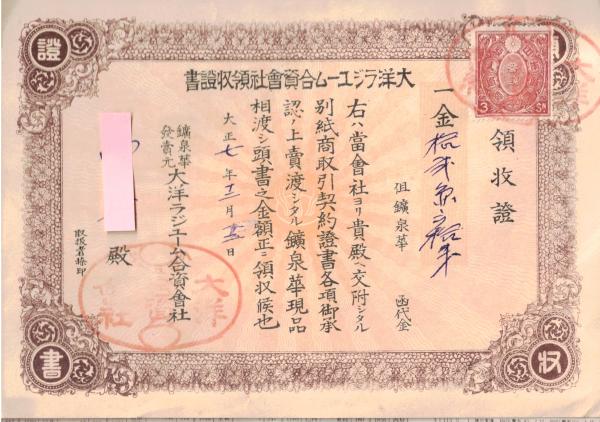 領
收
證
書
大洋ラジユーム合資會社領收證書
領收證
一金
但鑛泉華 函代金
右ハ當會社ヨリ貴殿ヘ交附シタル
別紙商取引契約證書各項御承
認ノ上賣渡シタル鑛泉華現品
相渡シ頭書之金額正ニ領収候也
大正七年十二月 日
鑛泉華
發賣元 大洋ラジユーム合資會社
取扱者捺印
殿
3 Sn
大洋